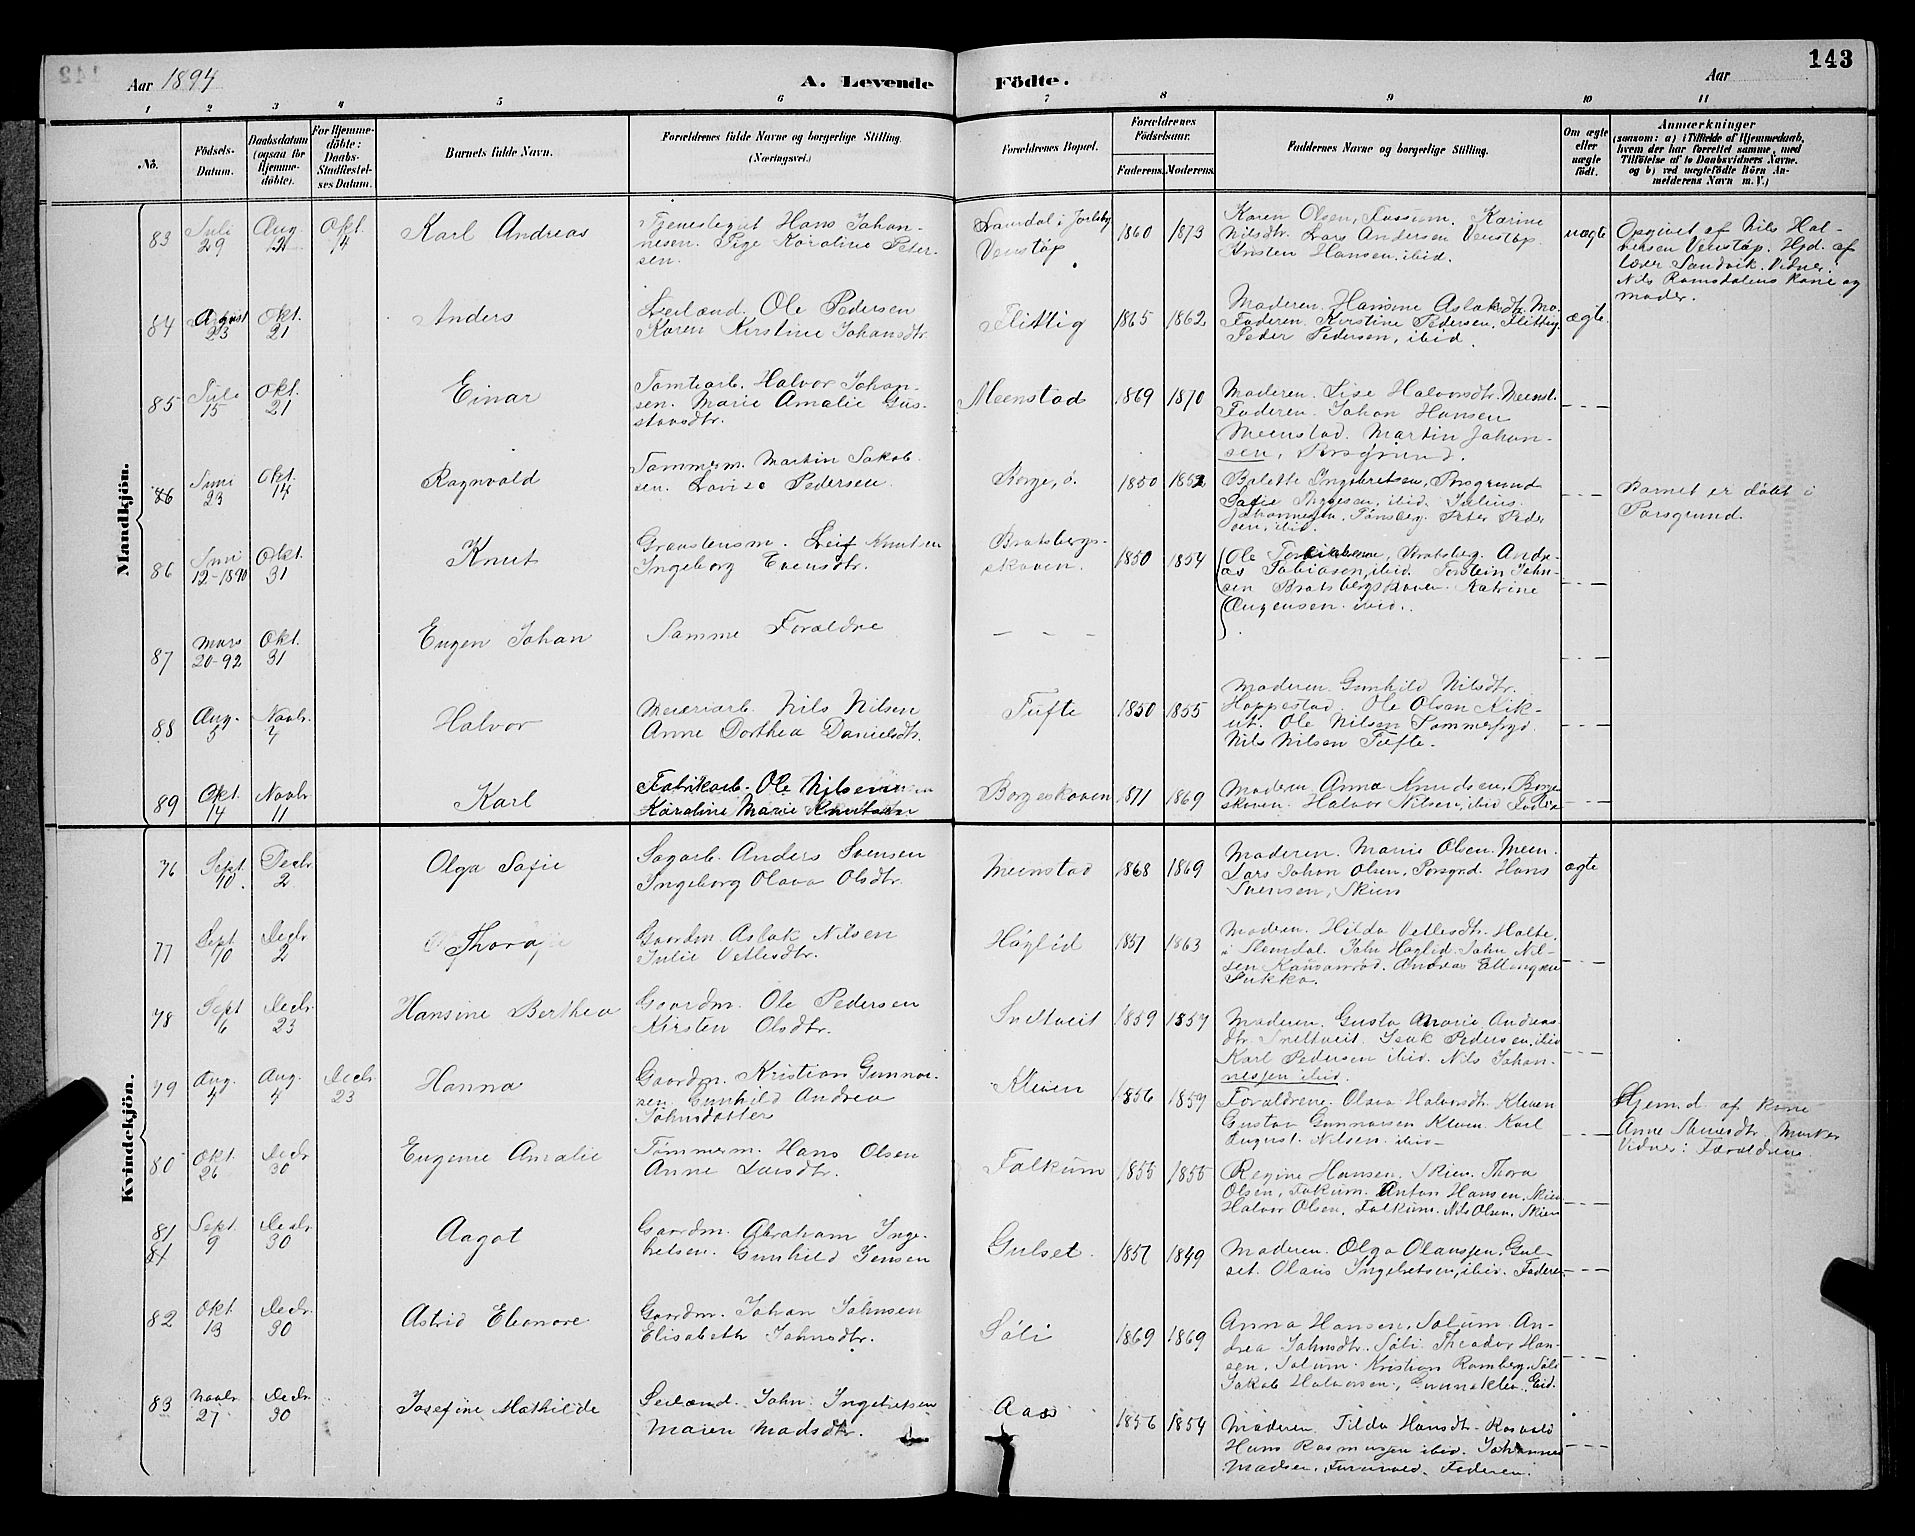 Aar 1894
A. Levende Födte.
Aar
143
1 2 3 4 5 6 7 8 9 10 11
No.
Födsels-Datum.
Daabsdatum (ogsaa for Hjemme-döbte).
For Hjemme-döbte: Daabs-Stadfæstel-ses Datum.
Barnets fulde Navn.
Forældrenes fulde Navne og borgerlige Stilling. (Næringsvei.)
Forældrenes Bopæl.
Forældrenes Födselsaar.
Faderens. Moderens.
Faddernes Navne og borgerlige Stilling.
Om ægte eller uægte födt.
Anmærkninger
(saasom: a) i Tilfælde af Hjemmedaab,
hvem der har forrettet samme, med
Tilföielse af to Daabsvidners Navne.
og b) ved uægtefödte Börn An-
melderens Navn m. V.)
Mandkjön.
83 Juli 29 Aug. 21 Okt. 14 Karl Andreas
Tjenestegut Hans Johan-
nesen. Pige Karoline Peder-
sen.
Venstøp 1860 1873
Karen Olsen, Fossum. Karine
Nilsdtr. Lars Andersen Venstøp.
Kristen Hansen, ibid.
uægte
Opgivet af Nils Hal-
vorsen Venstøp. Hjd. af
Lærer Sandvik. Vidner:
Nils Ramsdalens Kone og
moder.
84 August 23 Okt. 21 Anders
Leilænd. Ole Pedersen
Karen Kirstine Johansdtr.
Flittig 1865 1862
Moderen. Hansine Aslaksdtr. Mo.
Faderen. Kirstine Pedersen, Flittig
Peder Pedersen, ibid.
ægte.
85 Juli 15 Okt. 21 Einar
Tomtearb. Halvor Johan-
sen. Marie Amalie Gus-
tavsdtr.
Meenstad 1869 1870
Moderen. Lise Halvorsdtr. Meenst.
Faderen. Johan Hansen
Meenstad. Martin Johan-
sen, Porsgrund.
86 Juni 23 Okt. 14 Ragnvald
Tømmerm. Martin Jakob-
sen. Lovise Pedersen.
Borge, ø. 1850 1852
Bolette Ingebretsen, Porsgrund
Johannesen, Tønsberg. Peter Peder
sen, ibid.
Barnet er døbt i
Porsgrund.
86 Juni 12-1890 Okt. 31 Knut
Graastensm. Leif Knutsen
Ingeborg Evensdtr.
Bratsbergs-
skoven. 1850 1854
Ole Bratsberg. Andre-
as Tobiasen, ibid. Torstein John-
sen Bratsbergskoven. Katrine
Jørgensen ibid.
87 Mars 20-92 Okt. 31 Eugen Johan
Samme Forældre
— — —
88 Aug. 5 Novbr. 4 Halvor
Meieriarb. Nils Nilsen
Anne Dorthea Danielsdtr.
Tufte 1850 1855
Moderen. Gunhild Nilsdtr.
Hoppestad. Ole Olsen Kik-
ut. Ole Nilsen Sommerfryd.
Nils Nilsen Tufte.
89 Okt. 14 Novbr. 11 Karl
Fabrikarb. Ole Nilsen
Karoline Marie Knutsen
Borgeskoven 1871 1869
Moderen Anna Knudsen, Borge-
skoven. Halvor Nilsen, ibid
Kvindekjön.
76 Sept. 10. Decbr. 2 Olga Sofie
Sagarb. Anders Svensen
Ingeborg Olava Olsdtr.
Meenstad 1868 1869
Moderen. Marie Olsen. Meen.
Lars Johan Olsen, Porsgrd. Hans
Sørensen, Skien
ægte
77 Sept. 10 Decbr. 2 Thora
Gaardm. Aslak Nilsen
Julie Vetlesdtr.
Høglid 1851 1863
Moderen. Hilda Vetlesdtr. Holte
i Slemdal. John Høglid. John Nil-
sen Kausanrød. Andreas Ellingsen
Sukka.
78 Sept 6 Decbr. 23 Hansine Berthea
Gaardm. Ole Pedersen
Kirsten Olsdtr.
Snltveit 1859 1859
Moderen. Gusta Marie Andreas-
dtr. Sneltveit. Isak Pedersen, ibid
Karl Pedersen ibid. Nils Johan-
nesen ibid.
79 Aug. 4 Aug. 4 Decbr. 23 Hanna
Gaardm. Kristian Gunnar-
sen. Gunhild Andrea
Johnsdatter
Kleven 1856 1859
Forældrene. Olava Halvorsdtr. Kleven
Gustav Gunnarsen Kleven. Karl
August Nilsen. ibid
Hjem.d. af Kone
Anne
Vidner: Forældrene.
80 Okt. 26 Decbr 30 Eugenie Amalie
Tømmerm. Hans Olsen
Anne Larsdtr.
Falkum 1855 1855
Regine Hansen, Skien. Thora
Olsen, Falkum. Anton Hansen, Skien
Halvor Olsen, Falkum. Nils Olsen, Skien
81 81 Sept. 9 Decbr. 30 Aagot
Gaardm. Abraham Inge-
bretsen. Gunhild Jensen
Gulset. 1857 1849
Moderen. Olga Olaussen. Gul-
set. Olaus Ingebretsen, ibid. Faderen.
82 Okt. 13 Decbr. 30 Astrid Eleonore
Gaardm. Johan Johnsen
Elisabeth Johnsdtr.
Søli 1869 1869
Anna Hansen, Solum. An-
drea Johnsdtr. Søli. Theodor Han-
sen, Solum. Kristian Romberg, Søli
Jakob Halvorsen, Gunneklev, Eid.
83 Novbr. 27 Decbr. 30 Josefine Mathilde
Leilænd. John Ingebretsen
Maren Madsdtr.
Aas 1856 1854
Moderen. Tilda Hansdtr. Rosvald
Hans Rasmussen ibid. Johannes
Madsen, Furuvold. Faderen.